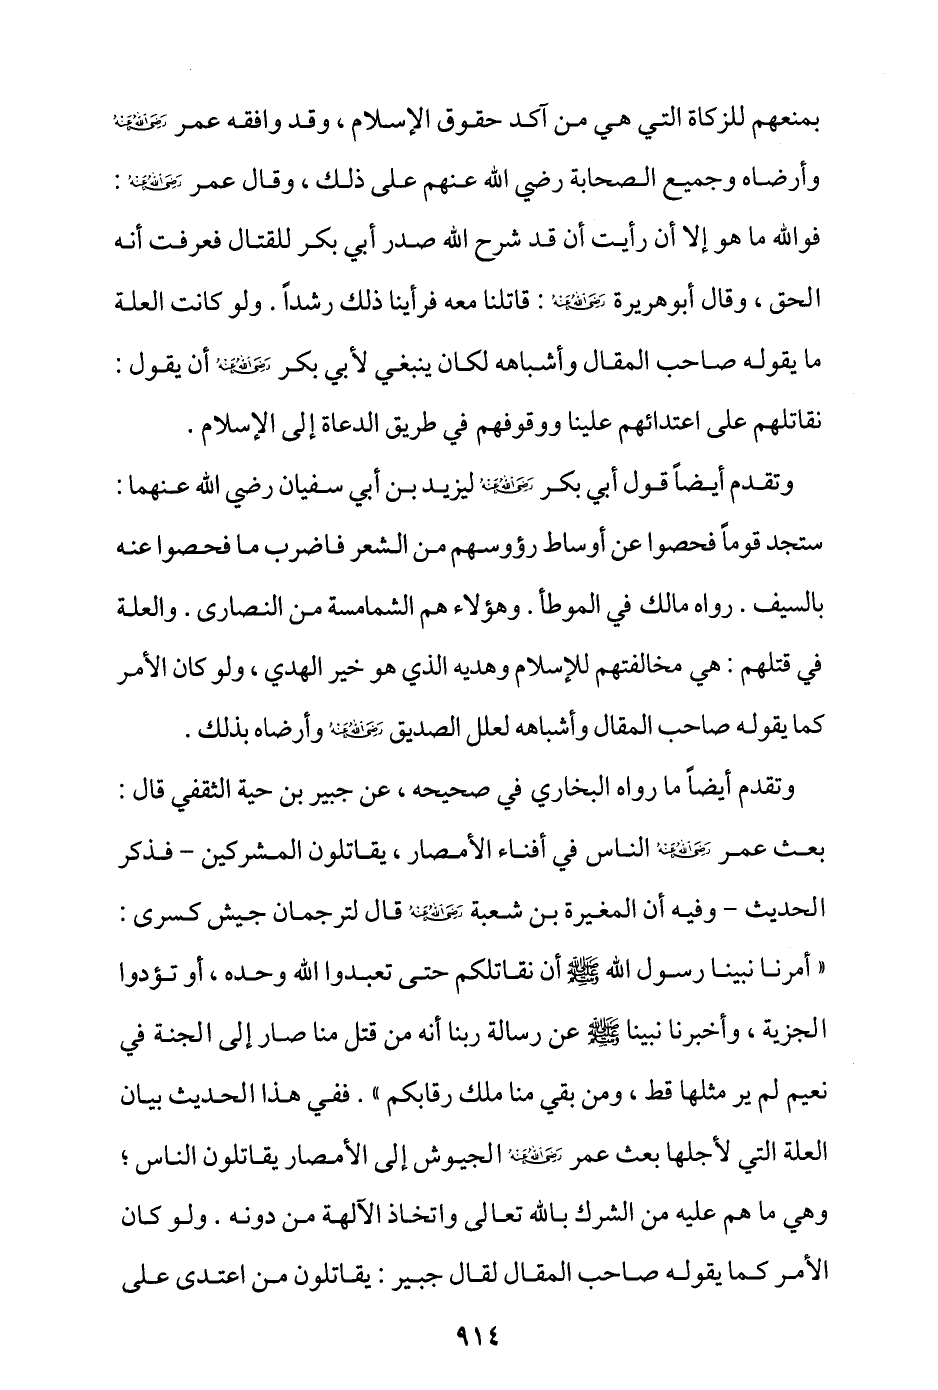 بمنعهم للزكاة التي هي من آكد حقوق الإسلام ، وقد وافقه عمر رَضِيَ اللهُ عَنْهُ
وأرضاه وجميع الصحابة رضي الله عنهم على ذلك ، وقال عمر رَضِيَ اللهُ عَنْهُ :
فوالله ما هو إلا أن رأيت أن قد شرح الله صدر أبي بكر للقتال فعرفت أنه
الحق ، وقال أبو هريرة رَضِيَ اللهُ عَنْهُ : قاتلنا معه فرأينا ذلك رشداً . ولو كانت العلة
ما يقوله صاحب المقال وأشباهه لكان ينبغي لأبي بكر رَضِيَ اللهُ عَنْهُ أن يقول :
نقاتلهم على اعتدائهم علينا ووقوفهم في طريق الدعاة إلى الإسلام .
وتقدم أيضاً قول أبي بكر رَضِيَ اللهُ عَنْهُ ليزيد بن أبي سفيان رضي الله عنهما :
ستجد قوماً فحصوا عن أوساط رؤوسهم من الشعر فاضرب ما فحصوا عنه
بالسيف . رواه مالك في الموطأ . وهؤلاء هم الشمامسة من النصارى . والعلة
في قتلهم : هي مخالفتهم للإسلام وهديه الذي هو خير الهدي ، ولو كان الأمر
كما يقوله صاحب المقال وأشباهه لعلل الصديق رَضِيَ اللهُ عَنْهُ وأرضاه بذلك .
وتقدم أيضاً ما رواه البخاري في صحيحه ، عن جبير بن حية الثقفي قال :
بعث عمر رَضِيَ اللهُ عَنْهُ الناس في أفناء الأمصار ، يقاتلون المشركين – فذكر
الحديث – وفيه أن المغيرة بن شعبة رَضِيَ اللهُ عَنْهُ قال لترجمان جيش كسرى :
« أمرنا نبينا رسول الله ﷺ أن نقاتلكم حتى تعبدوا الله وحده ، أو تؤدوا
الجزية ، وأخبرنا نبينا ﷺ عن رسالة ربنا أنه من قتل منا صار إلى الجنة في
نعيم لم ير مثلها قط ، ومن بقي منا ملك رقابكم » . ففي هذا الحديث بيان
العلة التي لأجلها بعث عمر رَضِيَ اللهُ عَنْهُ الجيوش إلى الأمصار يقاتلون الناس ؛
وهي ما هم عليه من الشرك بالله تعالى واتخاذ الآلهة من دونه . ولو كان
الأمر كما يقوله صاحب المقال لقال جبير : يقاتلون من اعتدى على
٩١٤